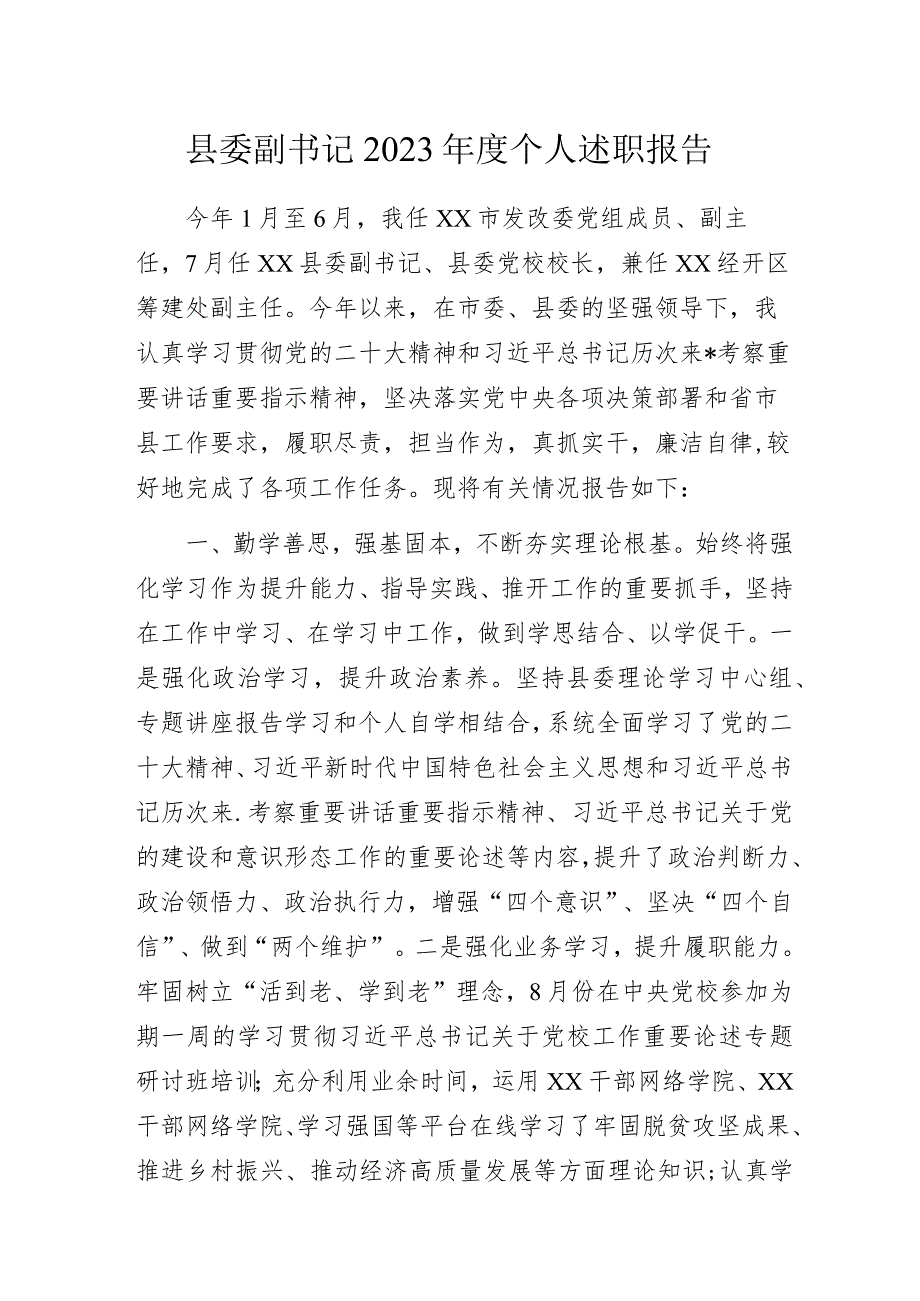 县委副书记2023年度个人述职报告
今年1月至6月，我任XX市发改委党组成员、副主
任，7月任XX县委副书记、县委党校校长，兼任XX经开区
筹建处副主任。今年以来，在市委、县委的坚强领导下，我
认真学习贯彻党的二十大精神和习近平总书记历次来*考察重
要讲话重要指示精神，坚决落实党中央各项决策部署和省市
县工作要求，履职尽责，担当作为，真抓实干，廉洁自律,较
好地完成了各项工作任务。现将有关情况报告如下：
一、勤学善思，强基固本，不断夯实理论根基。始终将强
化学习作为提升能力、指导实践、推开工作的重要抓手，坚持
在工作中学习、在学习中工作，做到学思结合、以学促干。一
是强化政治学习，提升政治素养。坚持县委理论学习中心组、
专题讲座报告学习和个人自学相结合，系统全面学习了党的二
十大精神、习近平新时代中国特色社会主义思想和习近平总书
记历次来.考察重要讲话重要指示精神、习近平总书记关于党
的建设和意识形态工作的重要论述等内容，提升了政治判断力、
政治领悟力、政治执行力，增强“四个意识”、坚决“四个自
信”、做到“两个维护”。二是强化业务学习，提升履职能力。
牢固树立“活到老、学到老”理念，8月份在中央党校参加为
期一周的学习贯彻习近平总书记关于党校工作重要论述专题
研讨班培训；充分利用业余时间，运用XX干部网络学院、XX
干部网络学院、学习强国等平台在线学习了牢固脱贫攻坚成果、
推进乡村振兴、推动经济高质量发展等方面理论知识;认真学